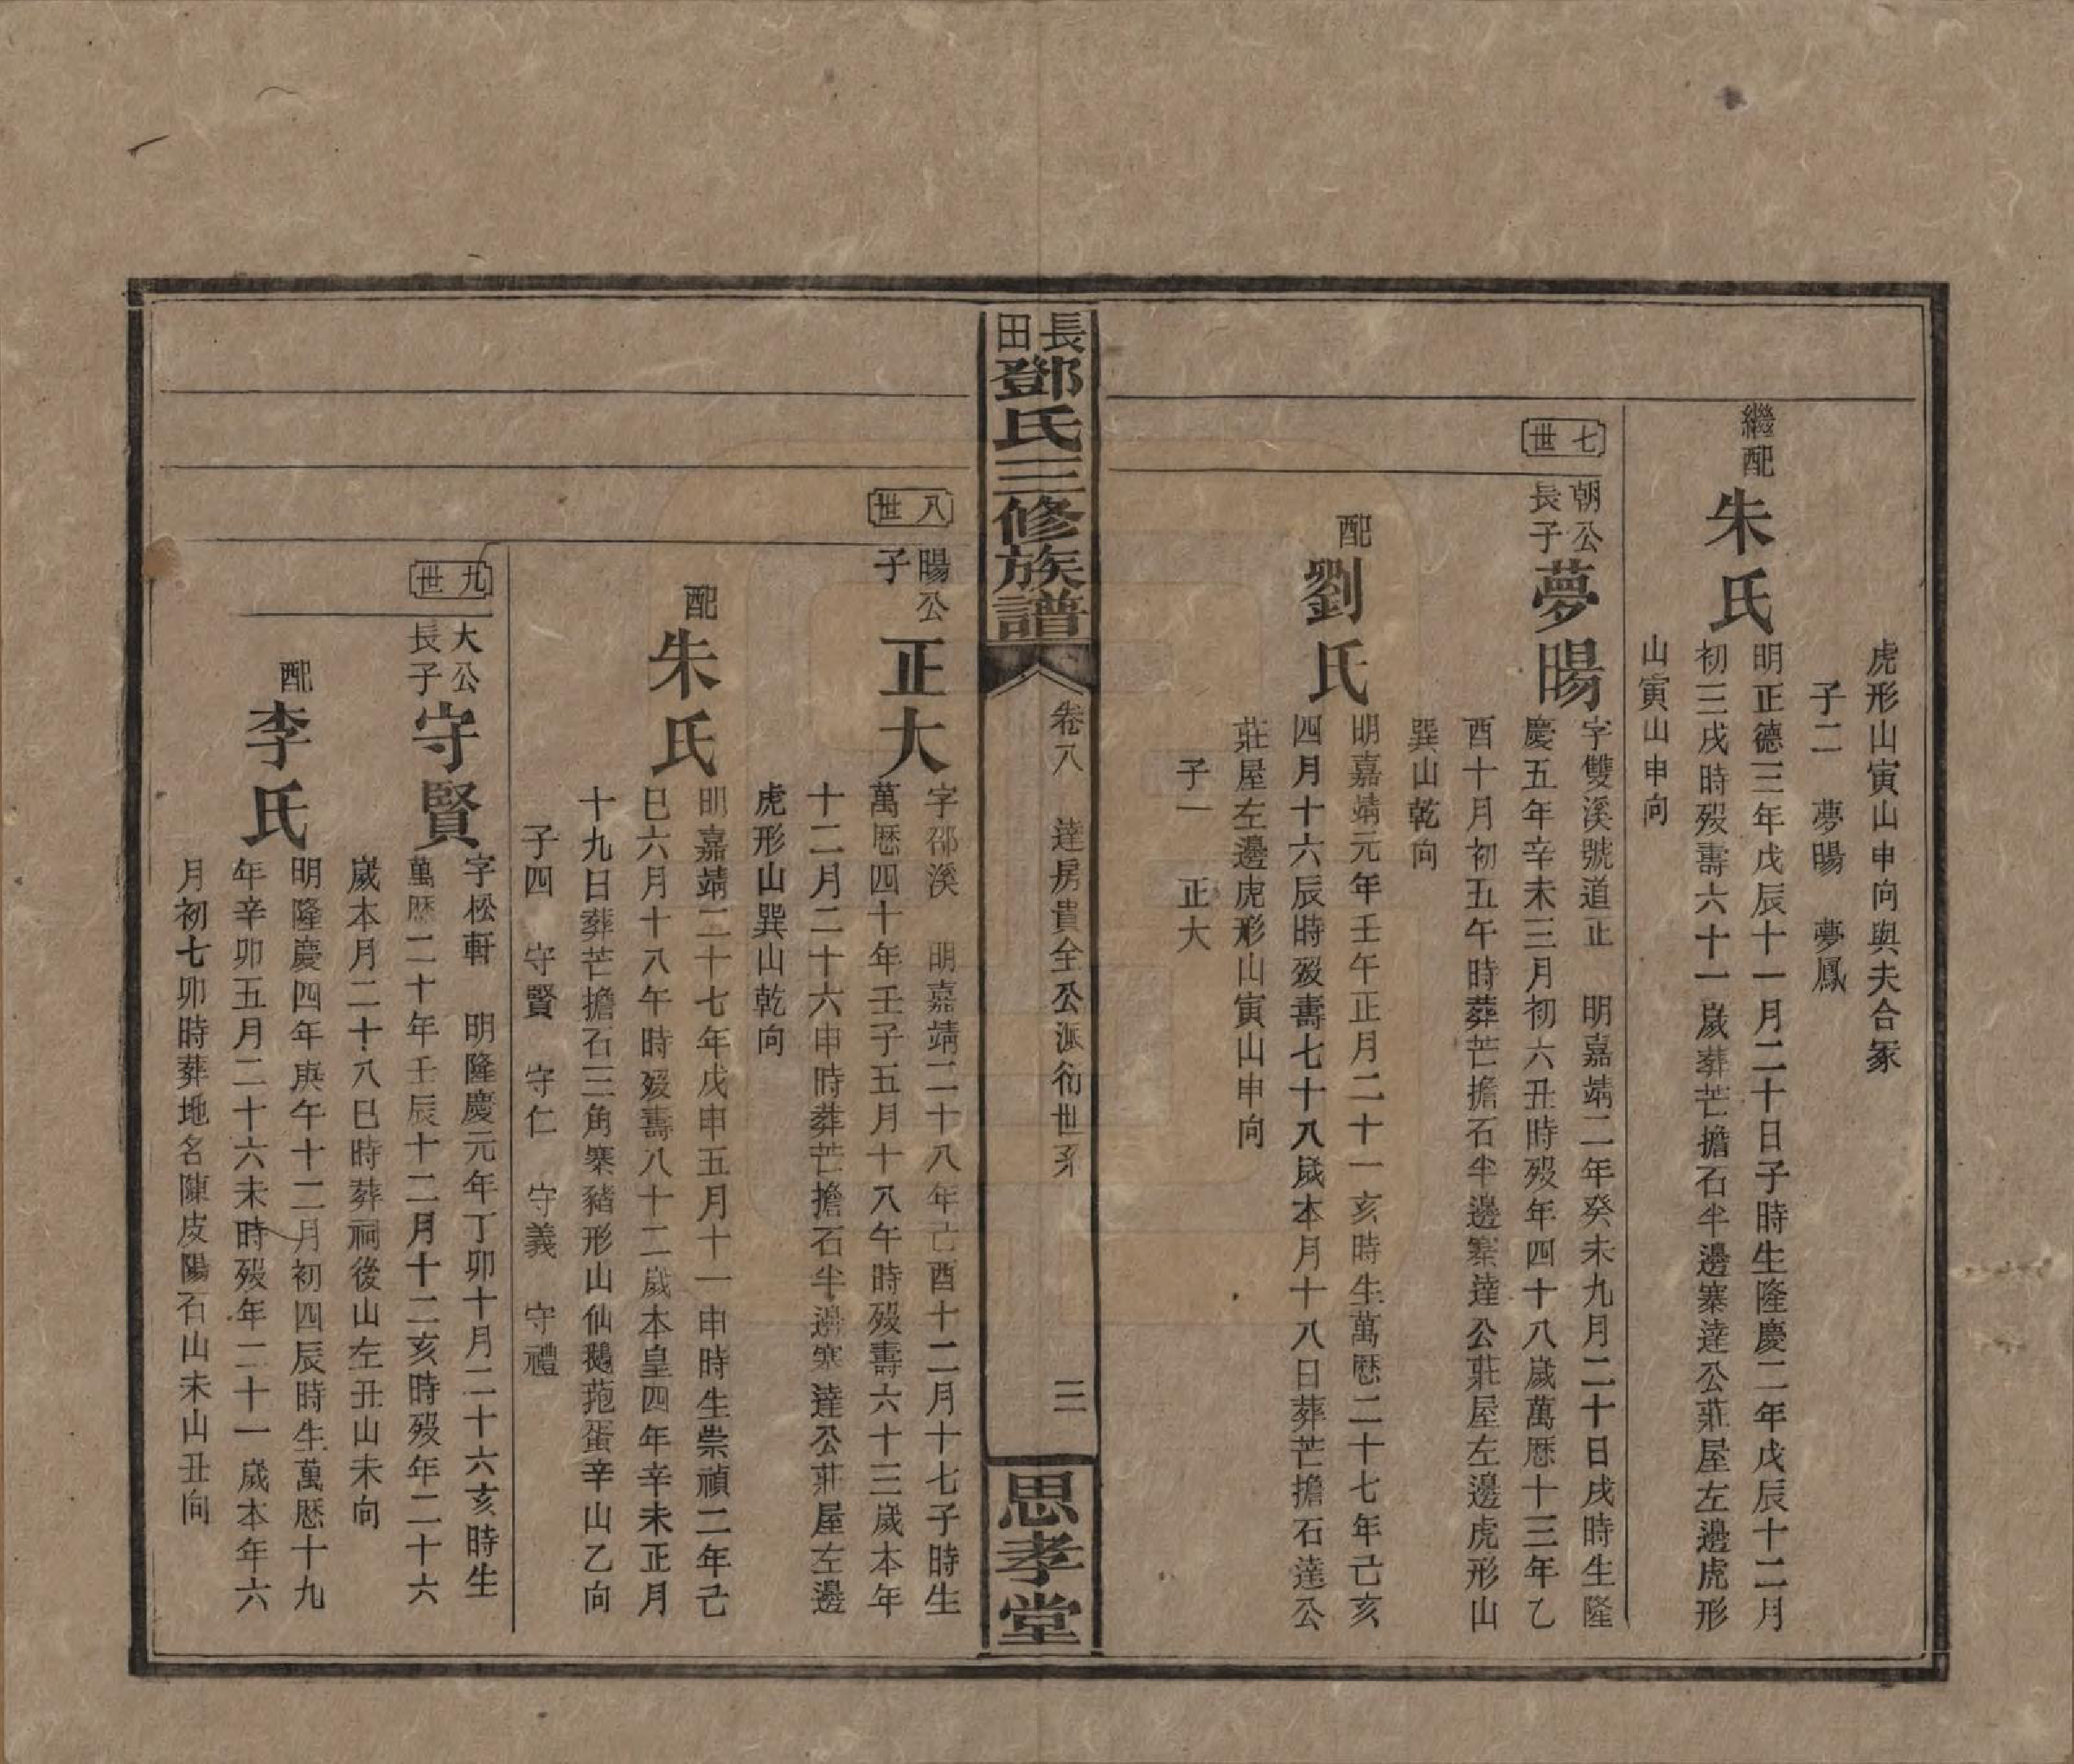 虎形山寅山申向與夫合冢
子二　夢暘　夢鳳
繼配
朱氏
明正德三年戊辰十一月二十日子時生隆慶二年戊辰十二月
初三戌時殁壽六十一歲葬芒擔石半邊寨達公莊屋左邊虎形
山寅山申向
七世
朝公
長子
夢暘
字雙溪號道止　明嘉靖二年癸未九月二十日戌時生隆
慶五年辛未三月初六丑時殁年四十八歲萬歷十三年乙
酉十月初五午時葬芒擔石半邊寨達公莊屋左邊虎形山
巽山乾向
配
劉氏
明嘉靖元年壬午正月二十一亥時生萬歷二十七年己亥
四月十六辰時殁壽七十八歲本月十八日葬芒擔石達公
莊屋左邊虎形山寅山申向
子一　正大
長田
鄧氏三修族譜
卷八　達房貴全公派衍世系
三
思孝堂
八世
暘公
子
正大
字邵溪　明嘉靖二十八年己酉十二月十七子時生
萬歷四十年壬子五月十八午時殁壽六十三歲本年
十二月二十六申時葬芒擔石半邊寨達公莊屋左邊
虎形山巽山乾向
配
朱氏
明嘉靖二十七年戊申五月十一申時生崇禎二年己
巳六月十八午時殁壽八十二歲本皇四年辛未正月
十九日葬芒擔石三角寨豬形山仙鵝菢蛋辛山乙向
子四　守賢　守仁　守義　守禮
九世
大公
長子
守賢
字松軒　明隆慶元年丁卯十月二十六亥時生
萬歷二十年壬辰十二月十二亥時殁年二十六
歲本月二十八巳時葬祠後山左丑山未向
配
李氏
明隆慶四年庚午十二月初四辰時生萬歷十九
年辛卯五月二十六未時殁年二十一歲本年六
月初七卯時葬地名陳皮陽石山未山丑向